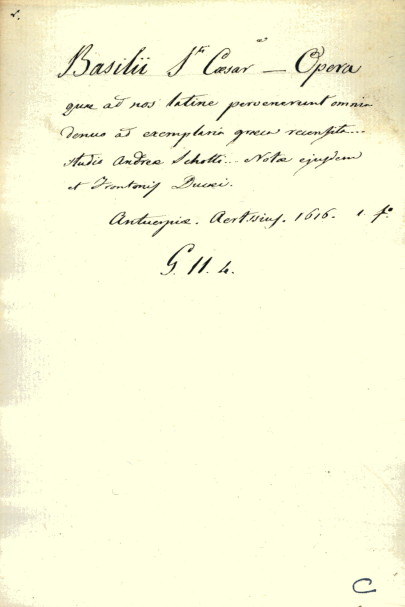 L.
Basilii Sti Cæsar — Opera
quæ ad nos latine pervenerunt omnia
denuo ad exemplaria græca recensita...
studio Andreæ Schotti... Notæ ejusdem
et Frontonis Ducæi.
Antuerpiæ. Aertssius. 1616. 1. fo.
G. 11. 4.
C